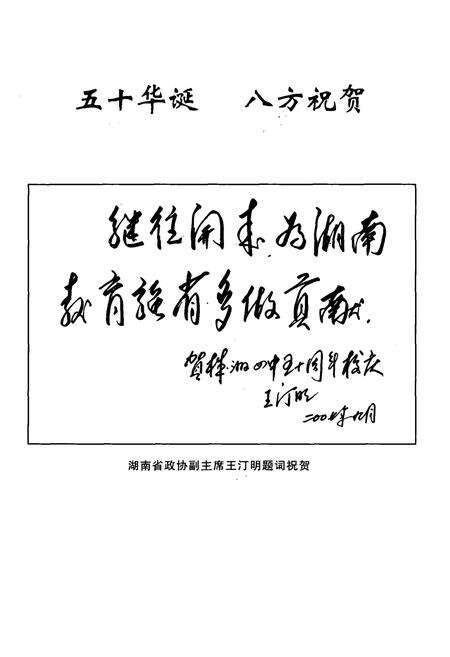 五十华诞 八方祝贺
继往开来,为湖南
教育强省多做贡献.
贺株洲四中五十周年校庆
王汀明
二00七年九月
湖南省政协副主席王汀明题词祝贺